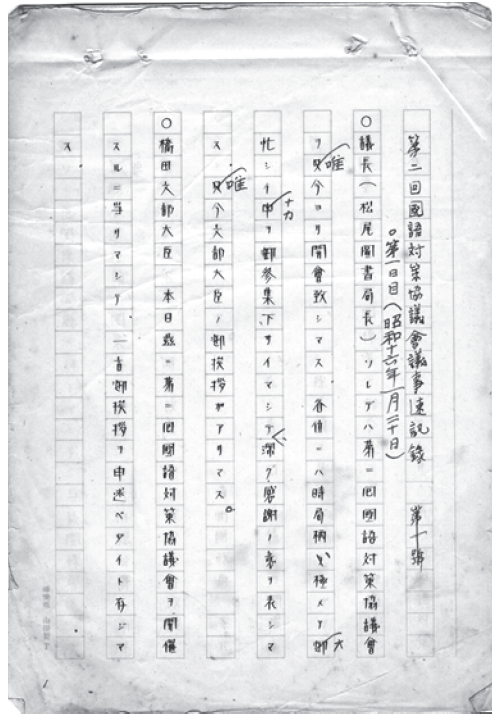 第二回國語對策協議會議事速記錄 第一號
○第一日目(昭和十六年一月二十日)
○議長(松尾圖書局長) ソレデハ第二回國語對策協議會
ヲ只唯今ヨリ開會致シマス 各位ニハ時局柄極メテ御大
忙シイ中ナカヲ御參集下サイマシテ深ク感謝ノ意ヲ表シマ
ス 只唯今文部大臣ノ御挨拶ガアリマス。
○橋田文部大臣 本日玆ニ第二回國語對策協議會ヲ開催
スルニ當リマシテ 一言御挨拶ヲ申述ベタイト存ジマ
ス